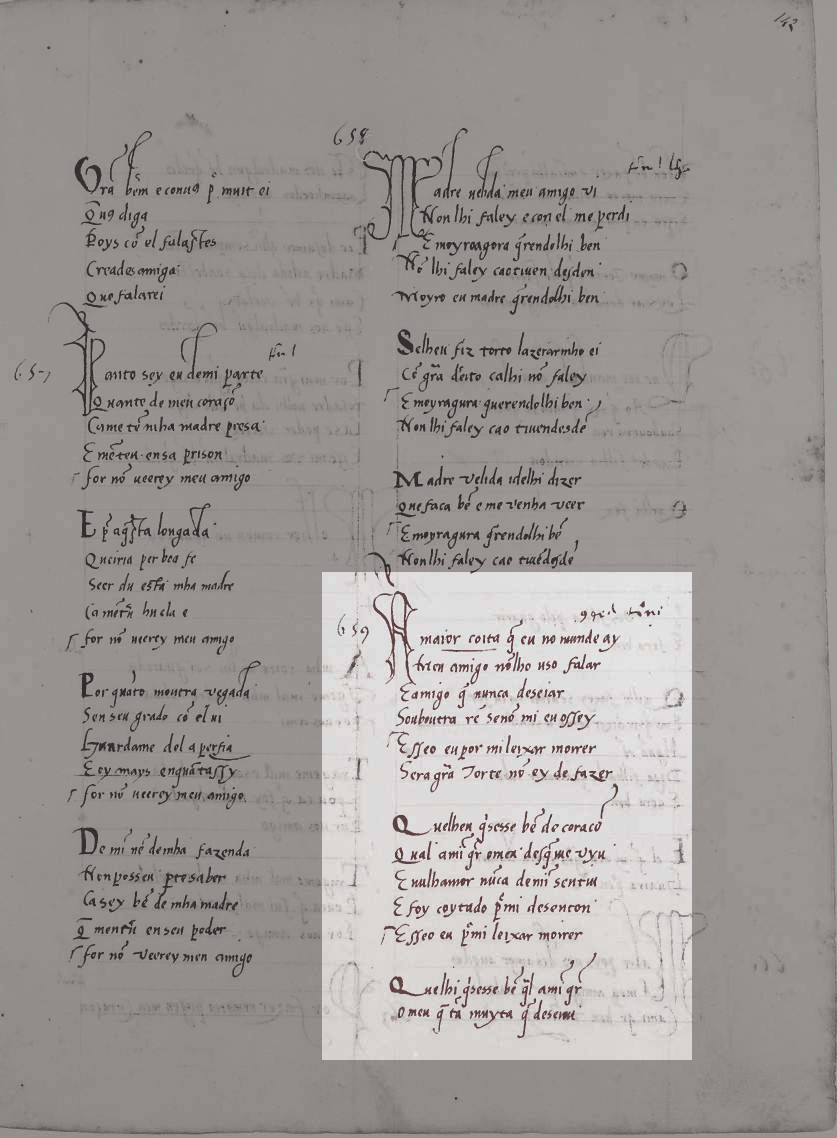 142
Ora bem e conuꝯ p̃ muit ei
Q̃ uꝯ diga
Poys cõ el falastes
Creades amiga
Que falarei
657
Panto sey eu demi parte
Quante de meu coraçõ
Came tẽ mha madre presa
E mẽteu ensa prison
for nõ ueerey meu amigo
E p̃ aq̃sta longada
Queiria per boa fe
Seer du esta mha madre
Ca
for nõ ueerey meu amigo
Por quãto moutra vegada
Sen seu grado cõ el ui
Guardame del a perfia
E ey mays enquãtassy
for nõ ueerey meu amigo
De mĩ nẽ demha fazenda
Non posseu parte saber
Ca sey bẽ de mha madre
Q̃ mentrũ en seu poder
for nõ veerey meu amigo
658
Madre uelida meu amigo vi
Non lhi faley e con el me perdi
E moyroagora q̃rendolhi ben
Nõ lhi faley caotiuen desden
Moyro eu madre q̃rendolhi ben
Selheu fiz torto lazerarmho ei
Cõ grã dẽito calhi nõ faley
E moyragura querendolhi ben
Non lhi faley cao tiuendesdẽ
Madre velida idelhi dizer
Que faca bẽ e me venha veer
E moyragura q̃rendolhi bẽ
Non lhi faley cao tiuẽdesdẽ
659
A maior coita q̃ eu no mundo ey
A meu amigo nõlho uso falar
E amigo q̃ nunca deseiar
Souboutra rẽ senõ mi eu ossey
E sseo eu por mi leixar morrer
Sera grã Torte nõ ey de fazer
Quelheu q̃sesse bẽ de coraçõ
Qual ami q̃r omeu desq̃me vyu
E nulhamor nũca demĩ sentiu
E foy coytado p̃ mi desenton
E sseo eu p̃ mi leixar morrer
Quelhi q̃sesse bẽ q̃l ami q̃r
O meu q̃ tã muyta q̃ deseiou